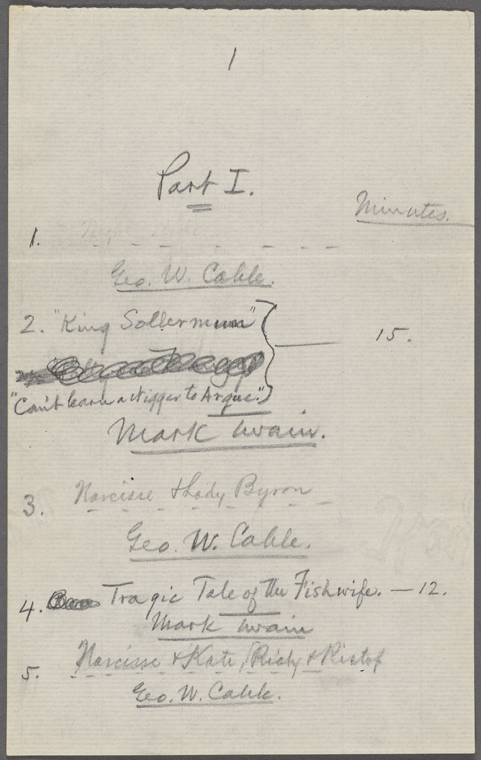 1
Part I.
Minutes.
1.
Geo. W. Cable.
2. "King Sollermun"
15.
"Can't learn a Nigger to Argue."
Mark Twain.
3. Narcisse & Lady Byron
Geo. W. Cable.
4. Tragic Tale of the Fishwife. — 12.
Mark Twain
5. Narcisse & Kate, Richg & Ristof
Geo. W. Cable.